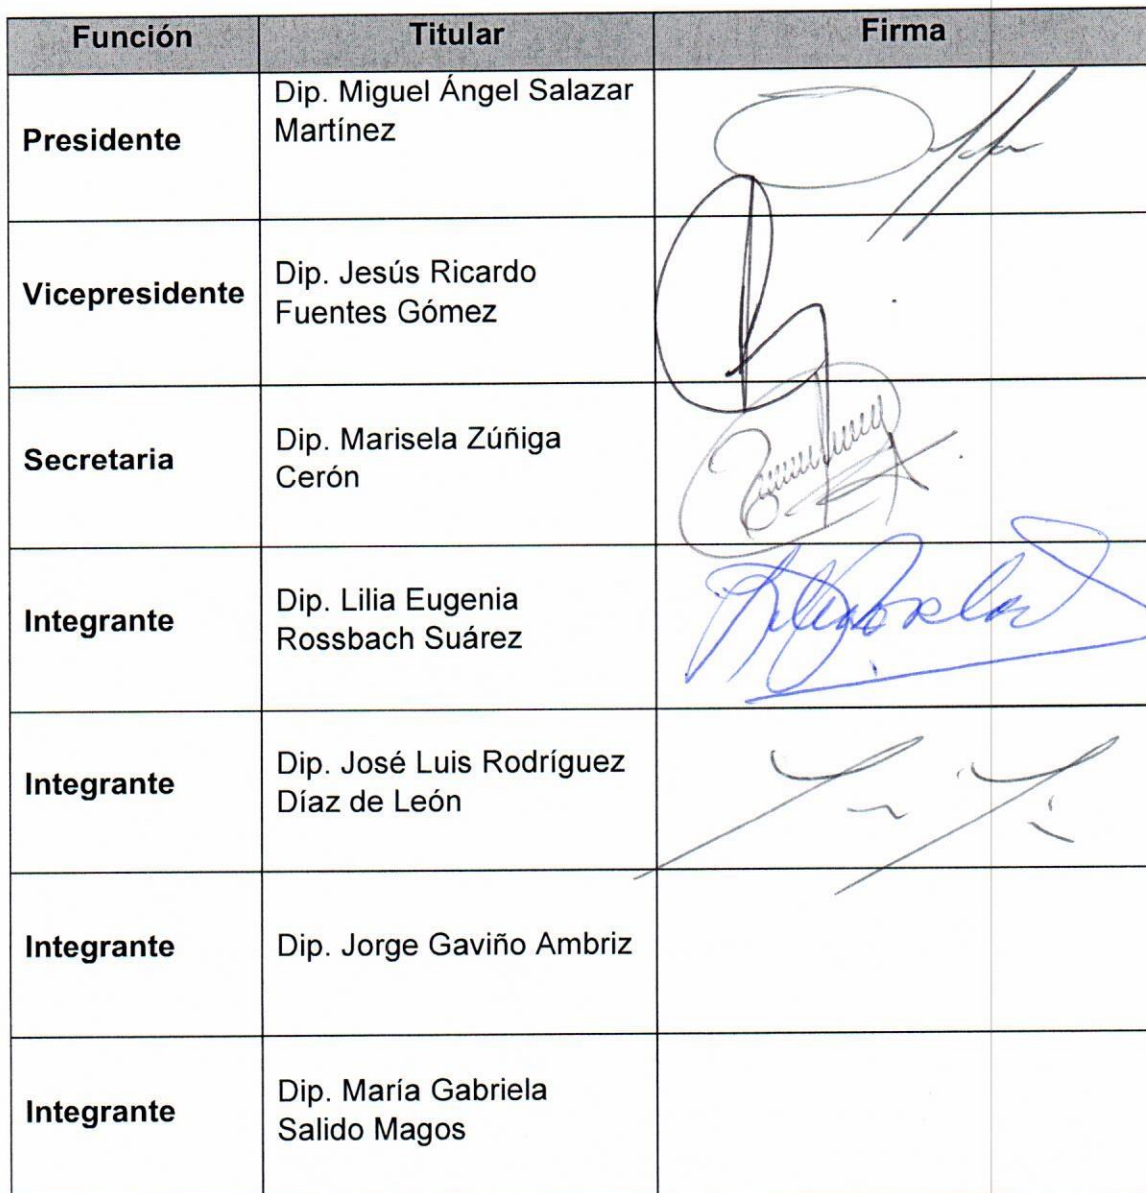 Función Titular Firma
Presidente
Dip. Miguel Ángel Salazar
Martínez
Vicepresidente
Dip. Jesús Ricardo
Fuentes Gómez
Secretaria
Dip. Marisela Zúñiga
Cerón
Integrante
Dip. Lilia Eugenia
Rossbach Suárez
Integrante
Dip. José Luis Rodríguez
Díaz de León
Integrante
Dip. Jorge Gaviño Ambriz
Integrante
Dip. María Gabriela
Salido Magos